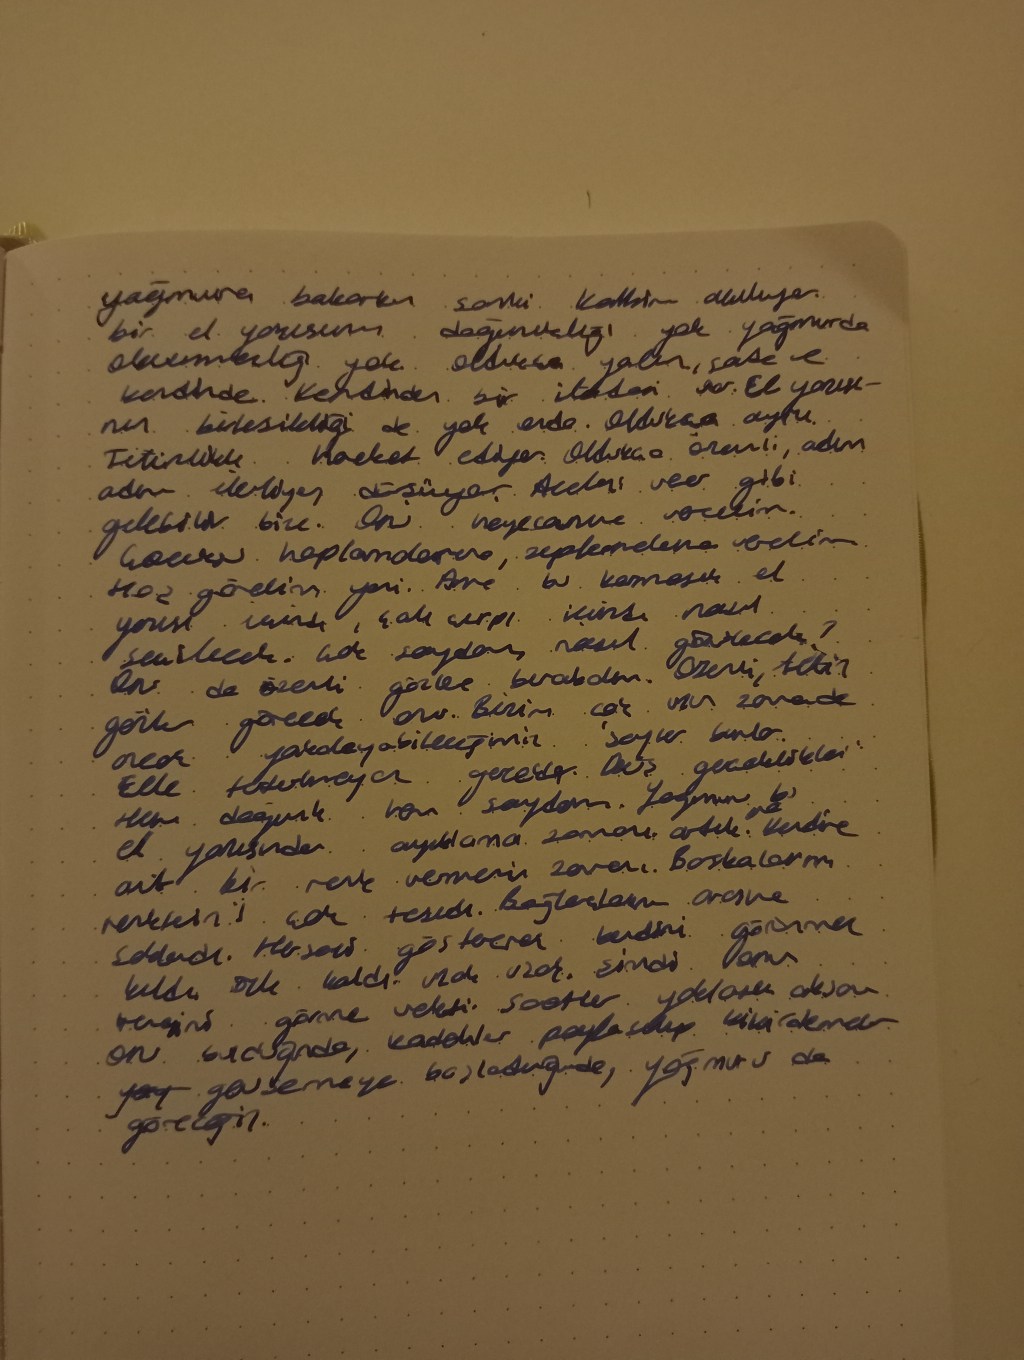 yağmura bakarken sanki kalbim akılıyor
bir el yazısının dağınıklığı yok yağmurda
yok oldukça yalın, sade ve
kendinde. Kendinden bir itadesi var. El yazısı-
nın birleşikliği de yok onda. Oldukça ayrı.
Titizlikle hareket ediyor. Oldukça özenli, adım
adım ilerliyor, düşünüyor. Acelesi var gibi
gelebilir bize. Onu heyecanına verelim.
haplamalarına, verelim
Haz görelim yani. Ama bu karmaşık el
yazısı içinde, çok çarpı içinde nasıl
seçilecek. Çok saydam, nasıl görülecek?
Onu da özenli gözlere bırakalım. Özenli, titiz
gözler görecek onu. Bizim çok uzun zamanda
ancak yakalayabileceğimiz şeyler bunlar.
Elle tutulmayan gerçekler. Akış gerçeklikleri
Hem dağınık hem saydam. Yağmuru bu
el yazısından ayıklama zamanı artık. Ve kendine
ait bir renk vermenin zamanı. Başkalarının
renklerini çok taşıdı. Bağlaçların arasına
saklandı. Herşeyi göstererek kendini görünmez
kıldı. Öyle kaldı. Uzak uzak. Şimdi onun
rengini görme vakti. Saatler yaklaşık akşam
onu bulduğunda, kadehler paylaşılıp
gevşemeye başladığında, yağmuru da
göreceğiz.